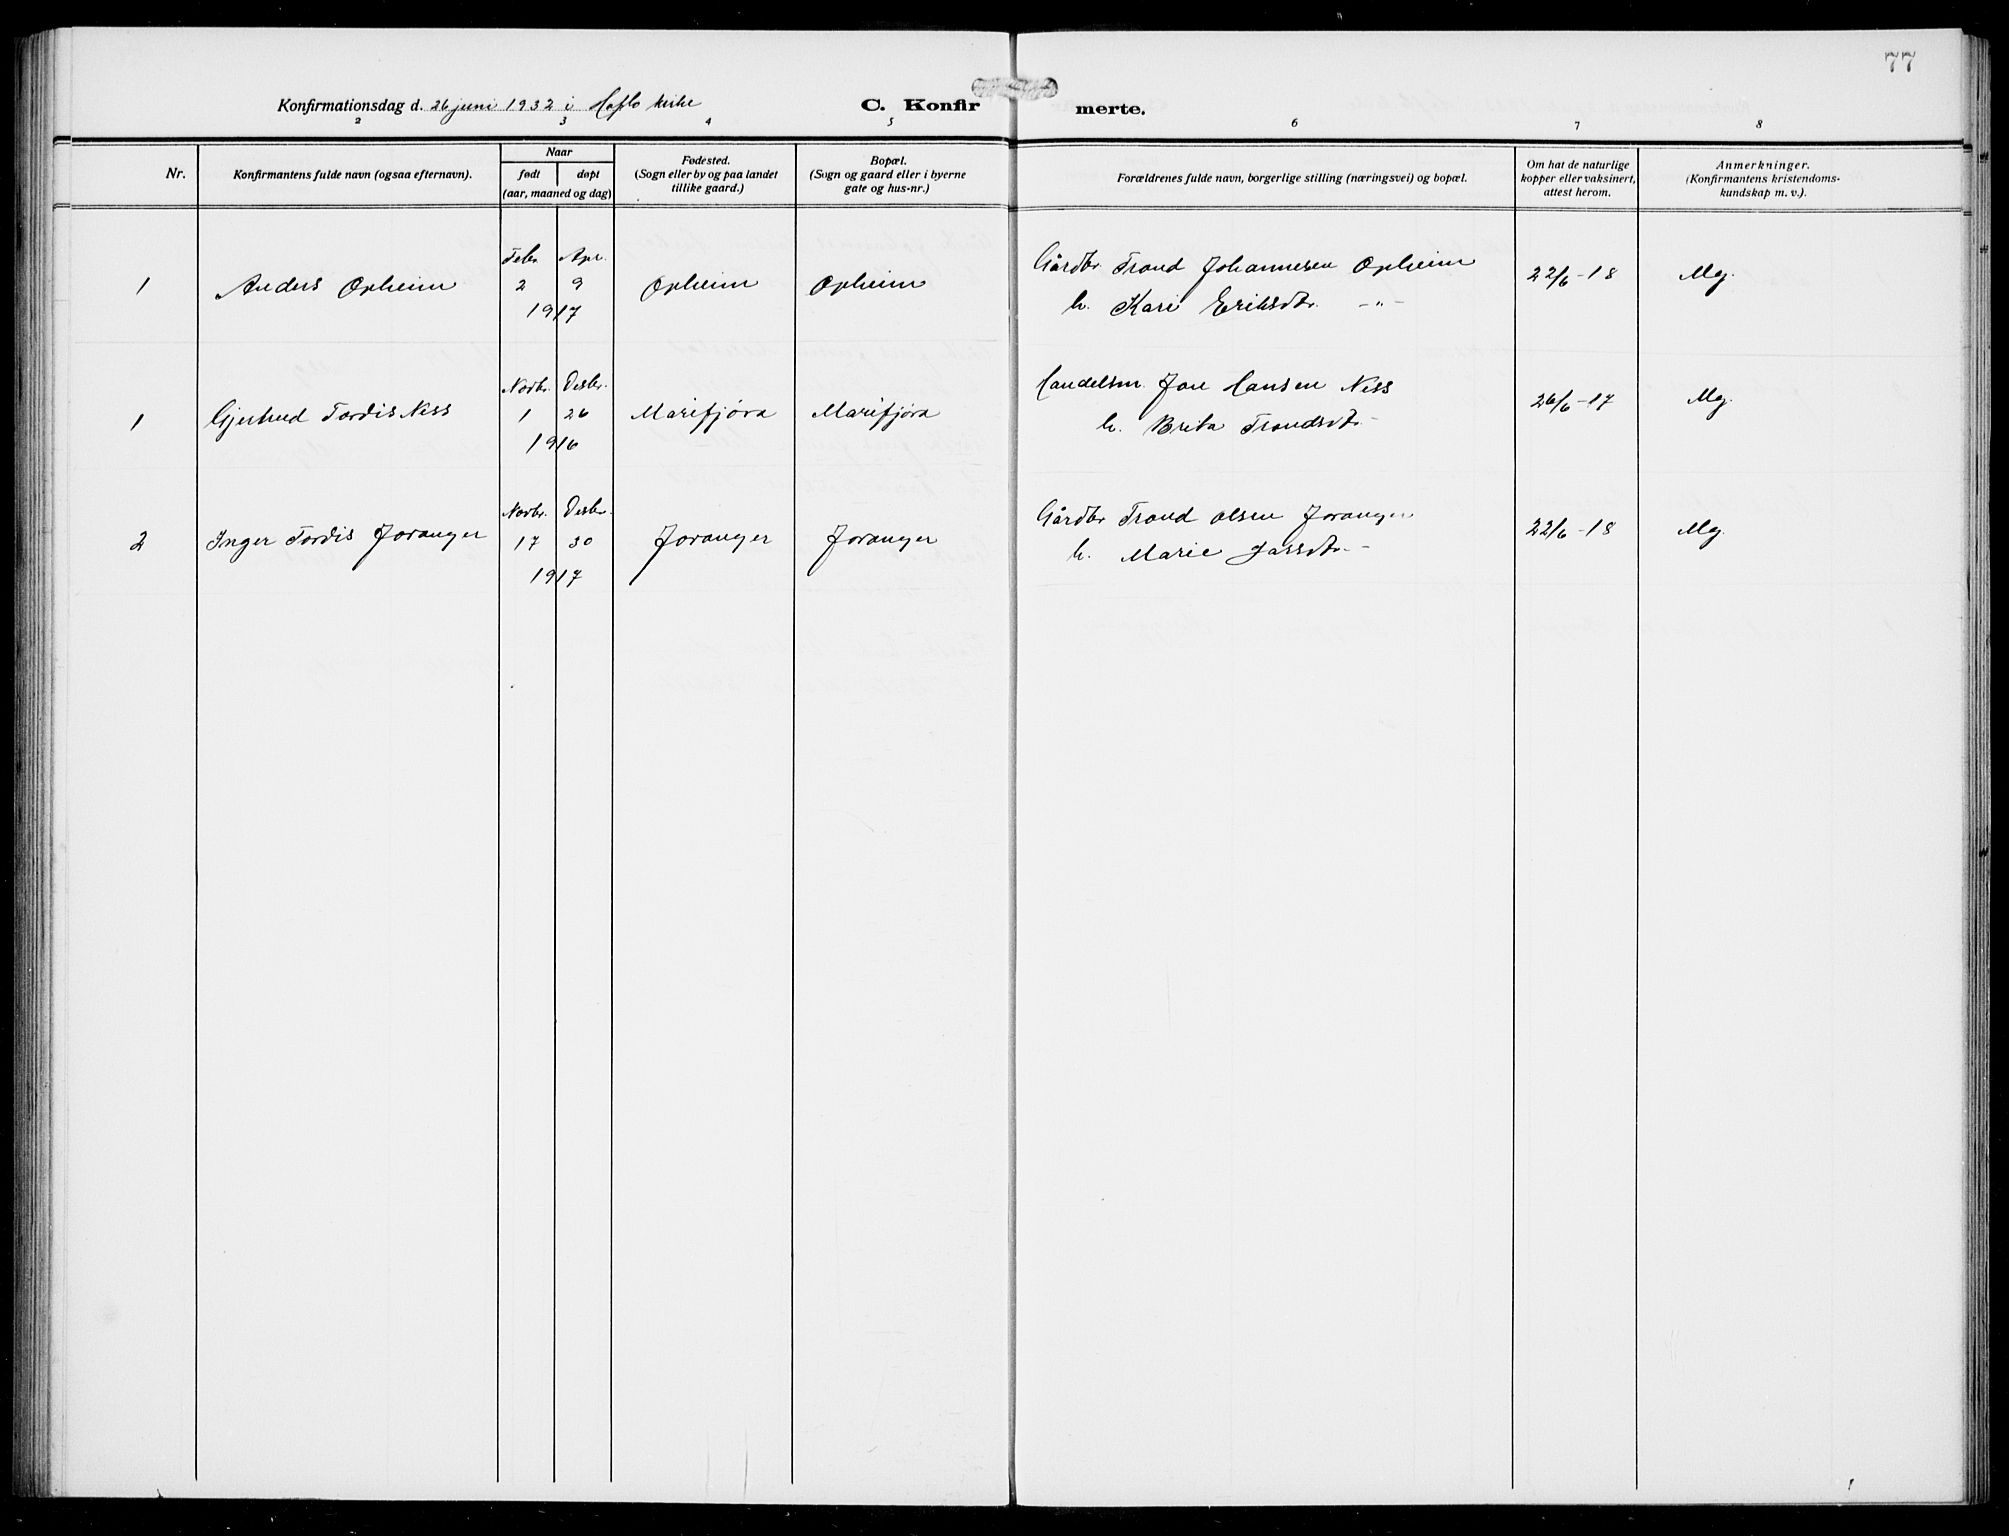 77
Konfirmationsdag d. 26 juni 1932 i Hafslo kirke
C. Konfirmerte.
2 3 4 5 6 7 8
Nr.
Konfirmantens fulde navn (ogsaa efternavn).
Naar
født døpt
(aar, maaned og dag)
Fødested.
(Sogn eller by og paa landet
tillike gaard.)
Bopæl.
(Sogn og gaard eller i byerne
gate og hus-nr.)
Forældrenes fulde navn, borgerlige stilling (næringsvei) og bopæl.
Om hat de naturlige
kopper eller vaksinert,
attest herom.
Anmerkninger.
(Konfirmantens kristendoms-
kundskap m. v.).
Febr. Apr. Gårdbr. Trond Johannesen Opheim
1 Anders Opheim 2 9 Opheim Opheim 22/6-18 Mg.
1917 h. Kari Eriksdtr. -"-
Novbr. Desbr. Handelsm. Jon Hansen Ness
1 Gjertrud Tordis Ness 1 26 Marifjøra Marifjøra 26/6-17 Mg.
1916 h. Brita Trondsdtr. -
Novbr. Desbr. Gårdbr Trond Olsen Joranger
2 Inger Tordis Joranger 17 30 Joranger Joranger 22/6-18 Mg.
1917 h. Marie -